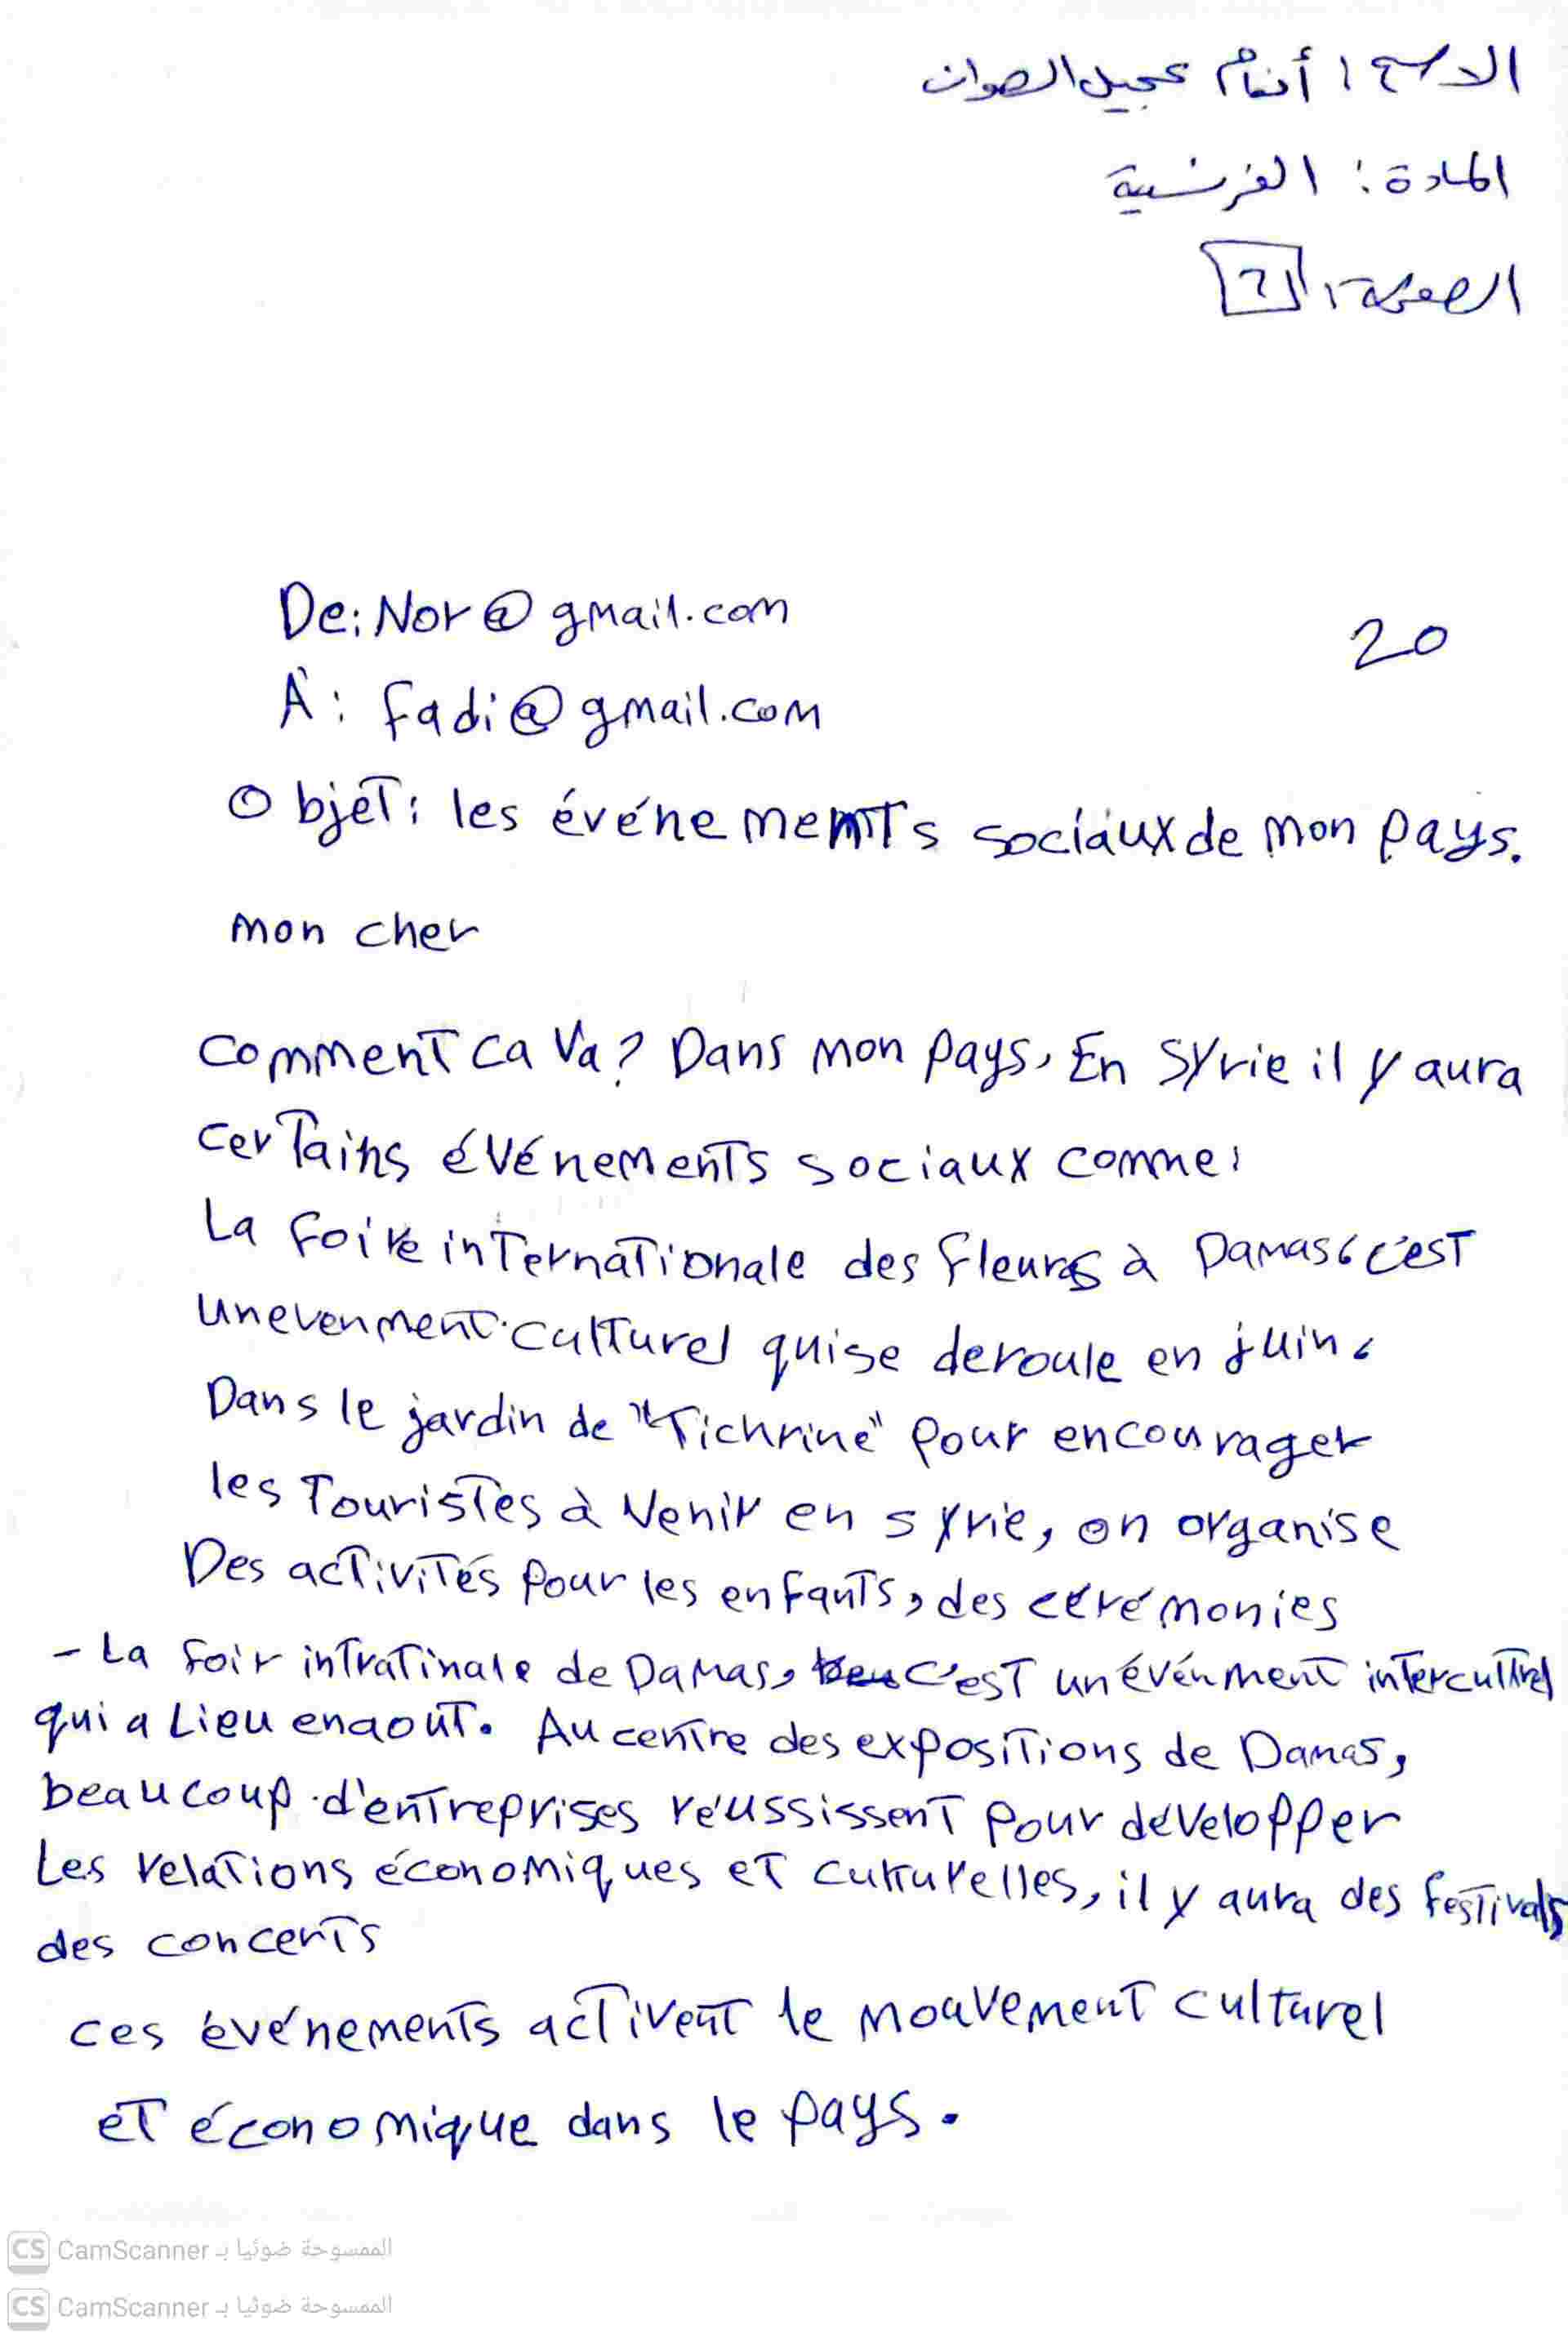 الاسم: أنغام عجيل الصوان
المادة: الفرنسية
الصفحة:
De: Nor@gmail.com
20
À: fadi@gmail.com
Objet: les événements sociaux de mon pays.
mon cher
comment ca va? Dans mon pays, En Syrie il y aura
certains événements sociaux comme:
La foire internationale des fleurs à Damas, c'est
un evenment culturel qui se deroule en juin,
Dans le jardin de "Tichrine" pour encourager
les Touristes à Venir en syrie, on organise
Des activités pour les enfants, des cérémonies
- La foir intratinale de Damas, c'est un événment intercultrel
qui a Lieu en aout. Au centre des expositions de Damas,
beaucoup d'entreprises réussissent pour développer
Les relations économiques et culturelles, il y aura des festivals
des concerts
ces événements activent le mouvement culturel
et économique dans le pays.
CS CamScanner الممسوحة ضوئيا بـ
CS CamScanner الممسوحة ضوئيا بـ